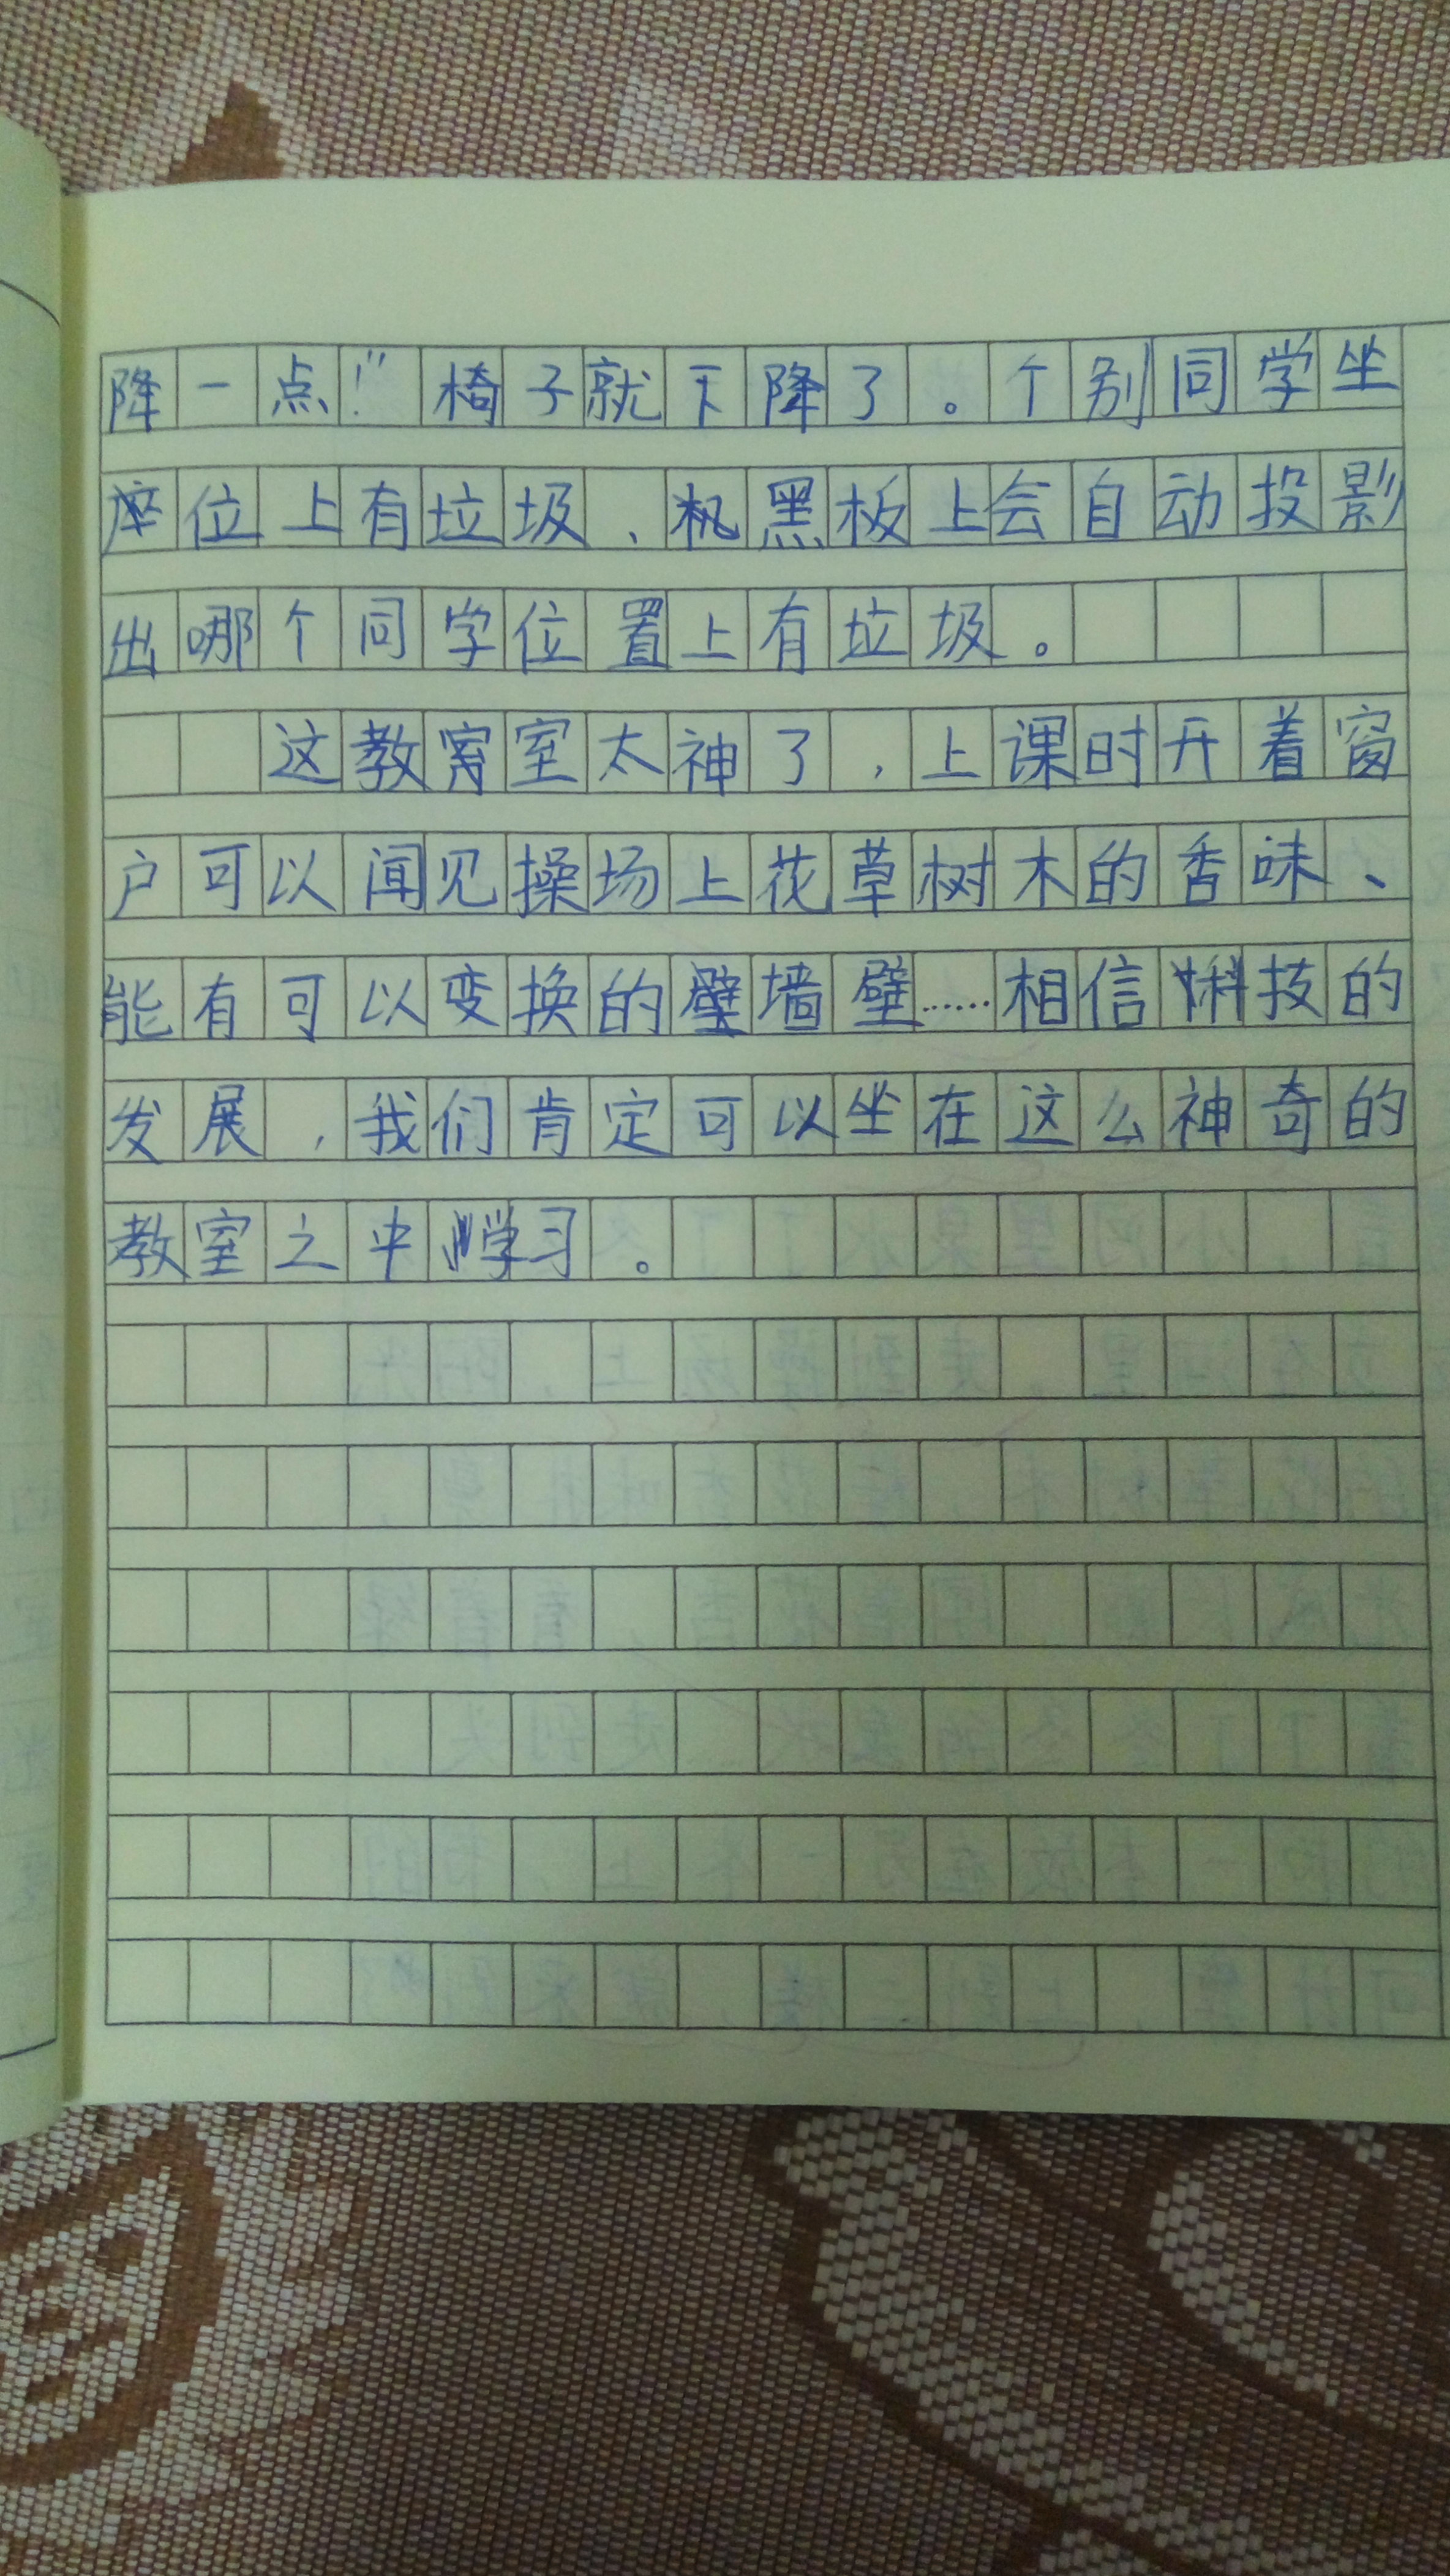 降一点！”椅子就下降了。个别同学坐
座位上有垃圾、机黑板上会自动投影
出哪个同学位置上有垃圾。
这教室太神了，上课时开着窗
户可以闻见操场上花草树木的香味、
能有可以变换的墙壁……相信科技的
发展，我们肯定可以坐在这么神奇的
教室之中学习。